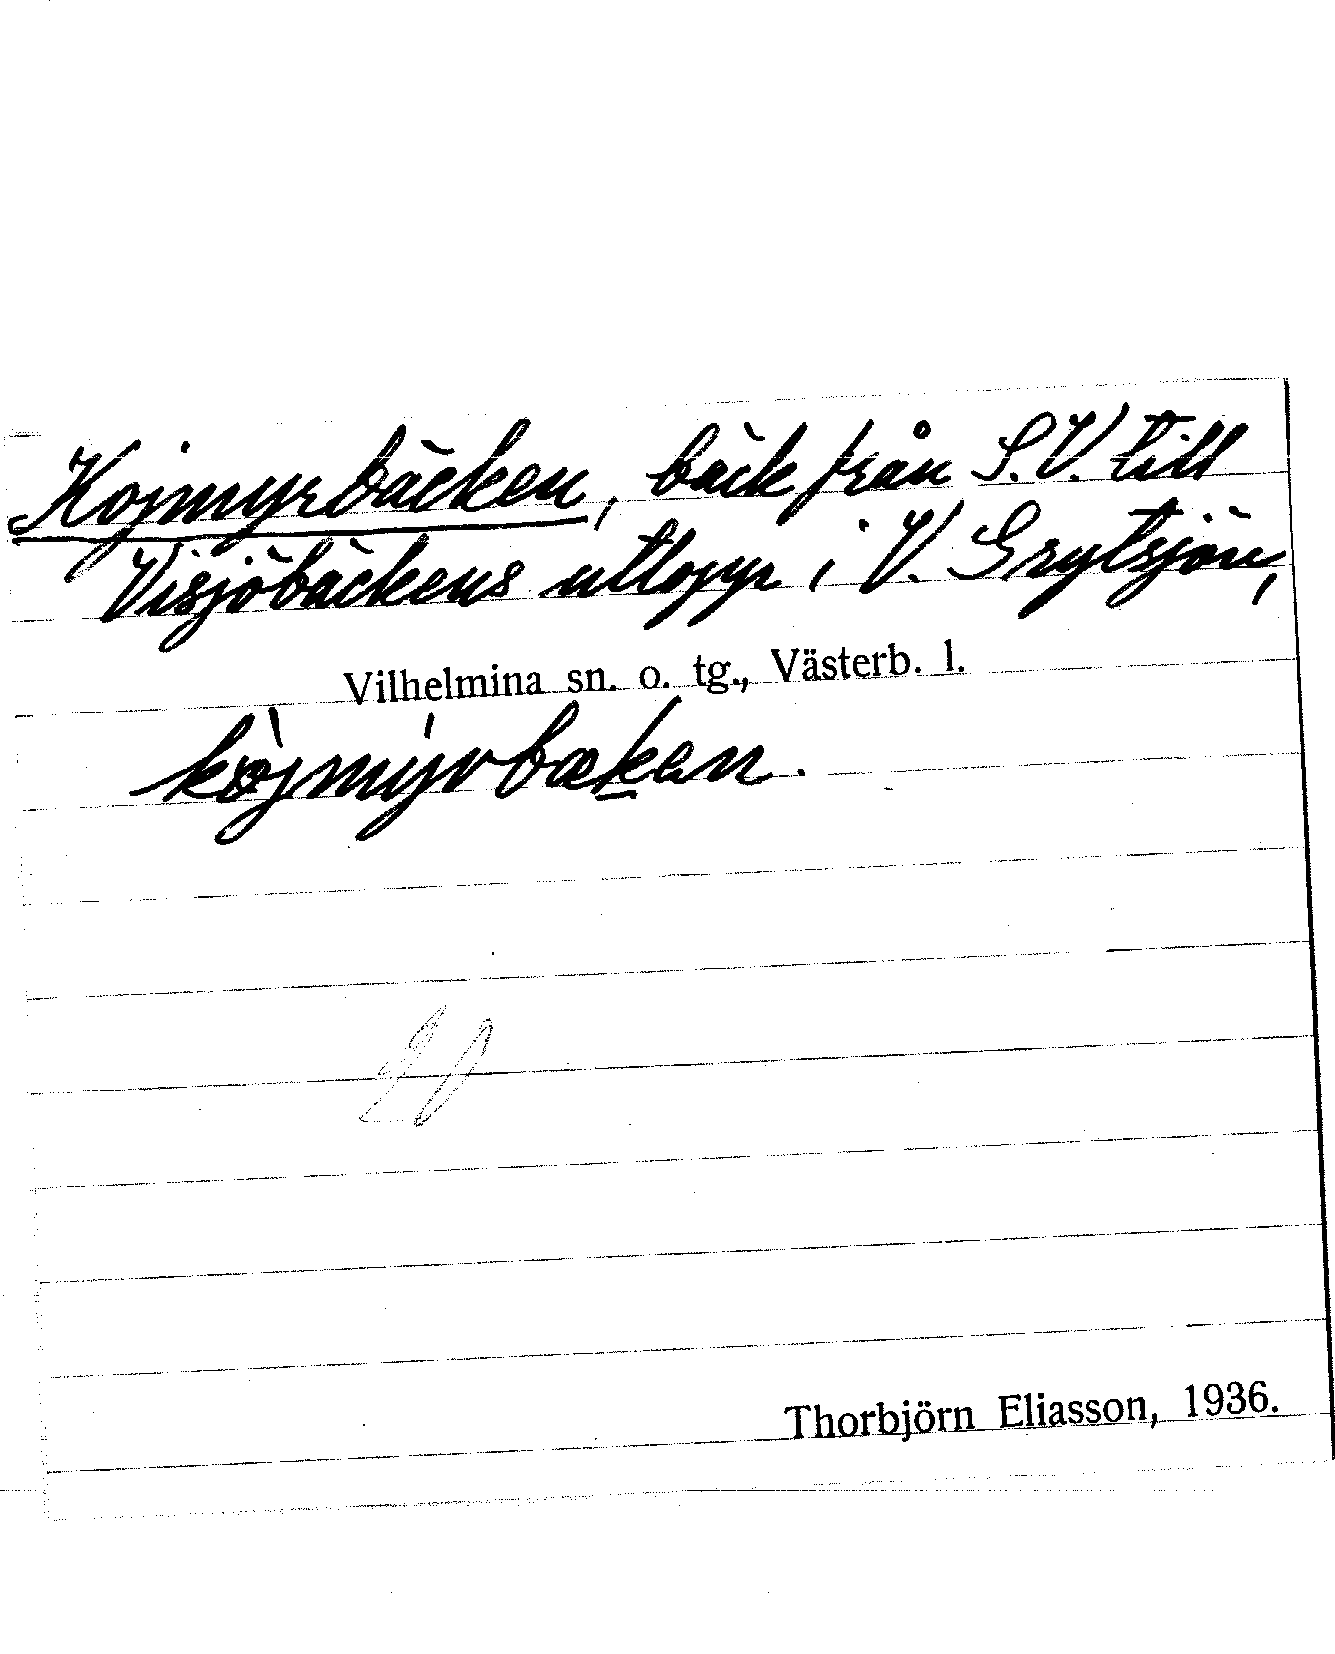 Kojmyrbäcken, bäck från S.V. till
Visjöbäckens utlopp i V. Grytsjön,
Vilhelmina sn. o. tg., Västerb. l.
Thorbjörn Eliasson, 1936.